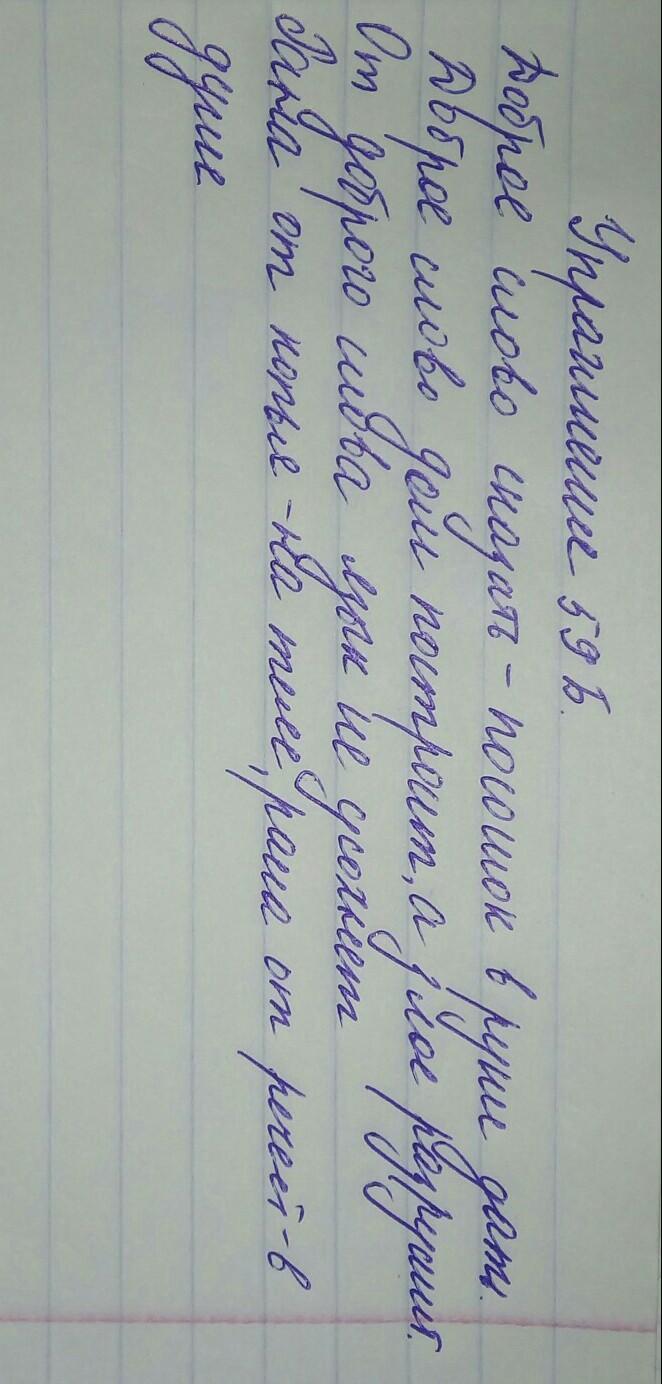 Упражнение 59 Б.
Доброе слово сказать - посошок в руки дать.
Доброе слово дом построит, а злое разрушит.
От доброго слова язык не усохнет
Рана от копья - на теле, рана от речей - в
душе